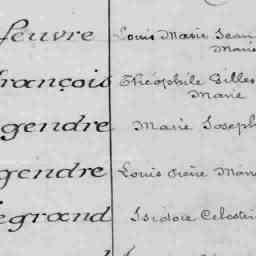 feuvre Louis Marie Jean
Marie
françois Théophile Gilles
Marie
gendre Marie Joseph
gendre Louis
egrand Isidore Célestin